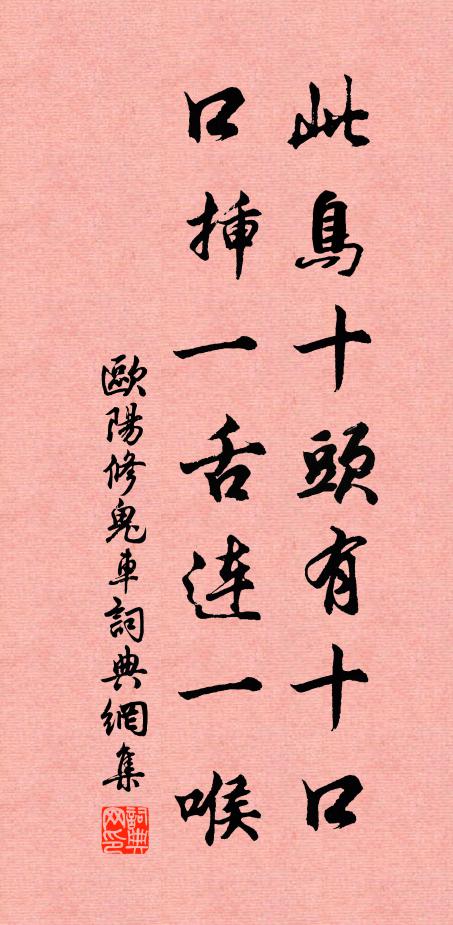 此鳥十頭有十口
口揷一舌連一喉
歐陽修鬼車詞典網集
詞典
网印